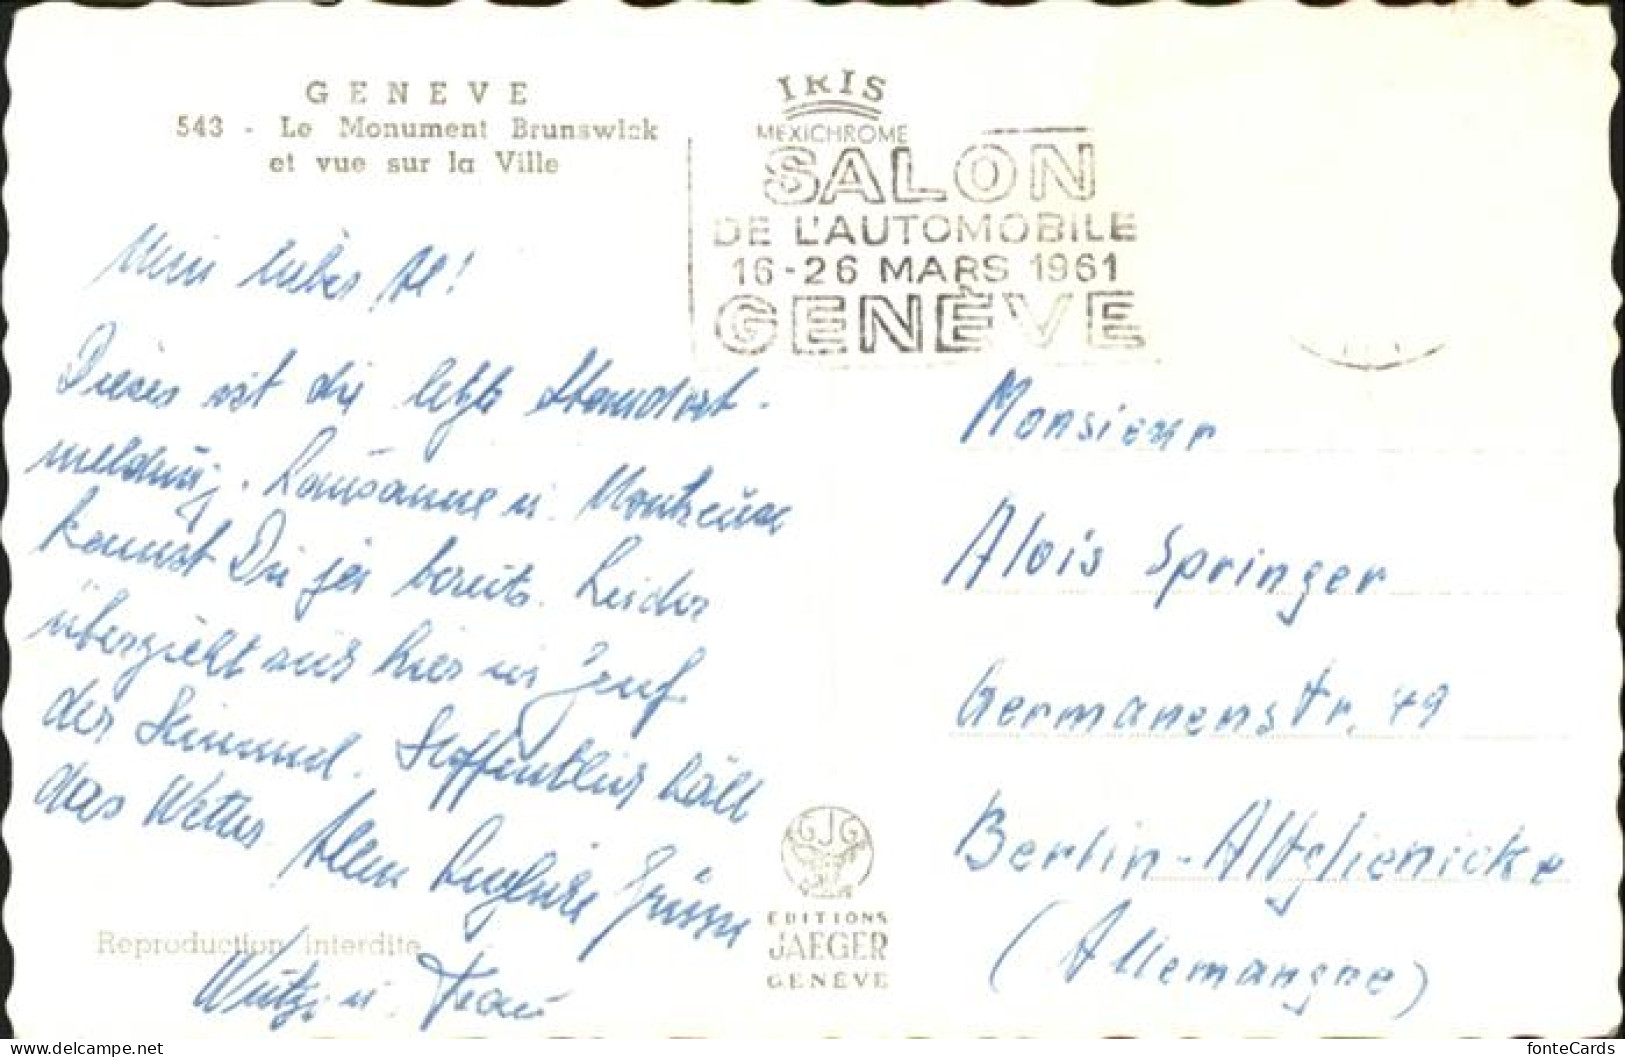 GENEVE
543 - Le Monument Brunswick
et vue sur la Ville
IRIS
MEXICHROME
SALON
DE L'AUTOMOBILE
16-26 MARS 1961
GENÈVE
Mein lieber Al!
Dieses ist die letzte Standort-
meldung. Lausanne u. Montreux
kennst Du ja bereits. Leider
überzieht sich hier in Genf
der Himmel. Hoffentlich hält
das Wetter. Allen herzliche Grüsse
u. Frau
Monsieur
Alois Springer
Germanenstr. 79
Berlin-Altglienicke
(Allemangne)
GJG
EDITIONS
JAEGER
GENÈVE
Reproduction interdite
fonteCards